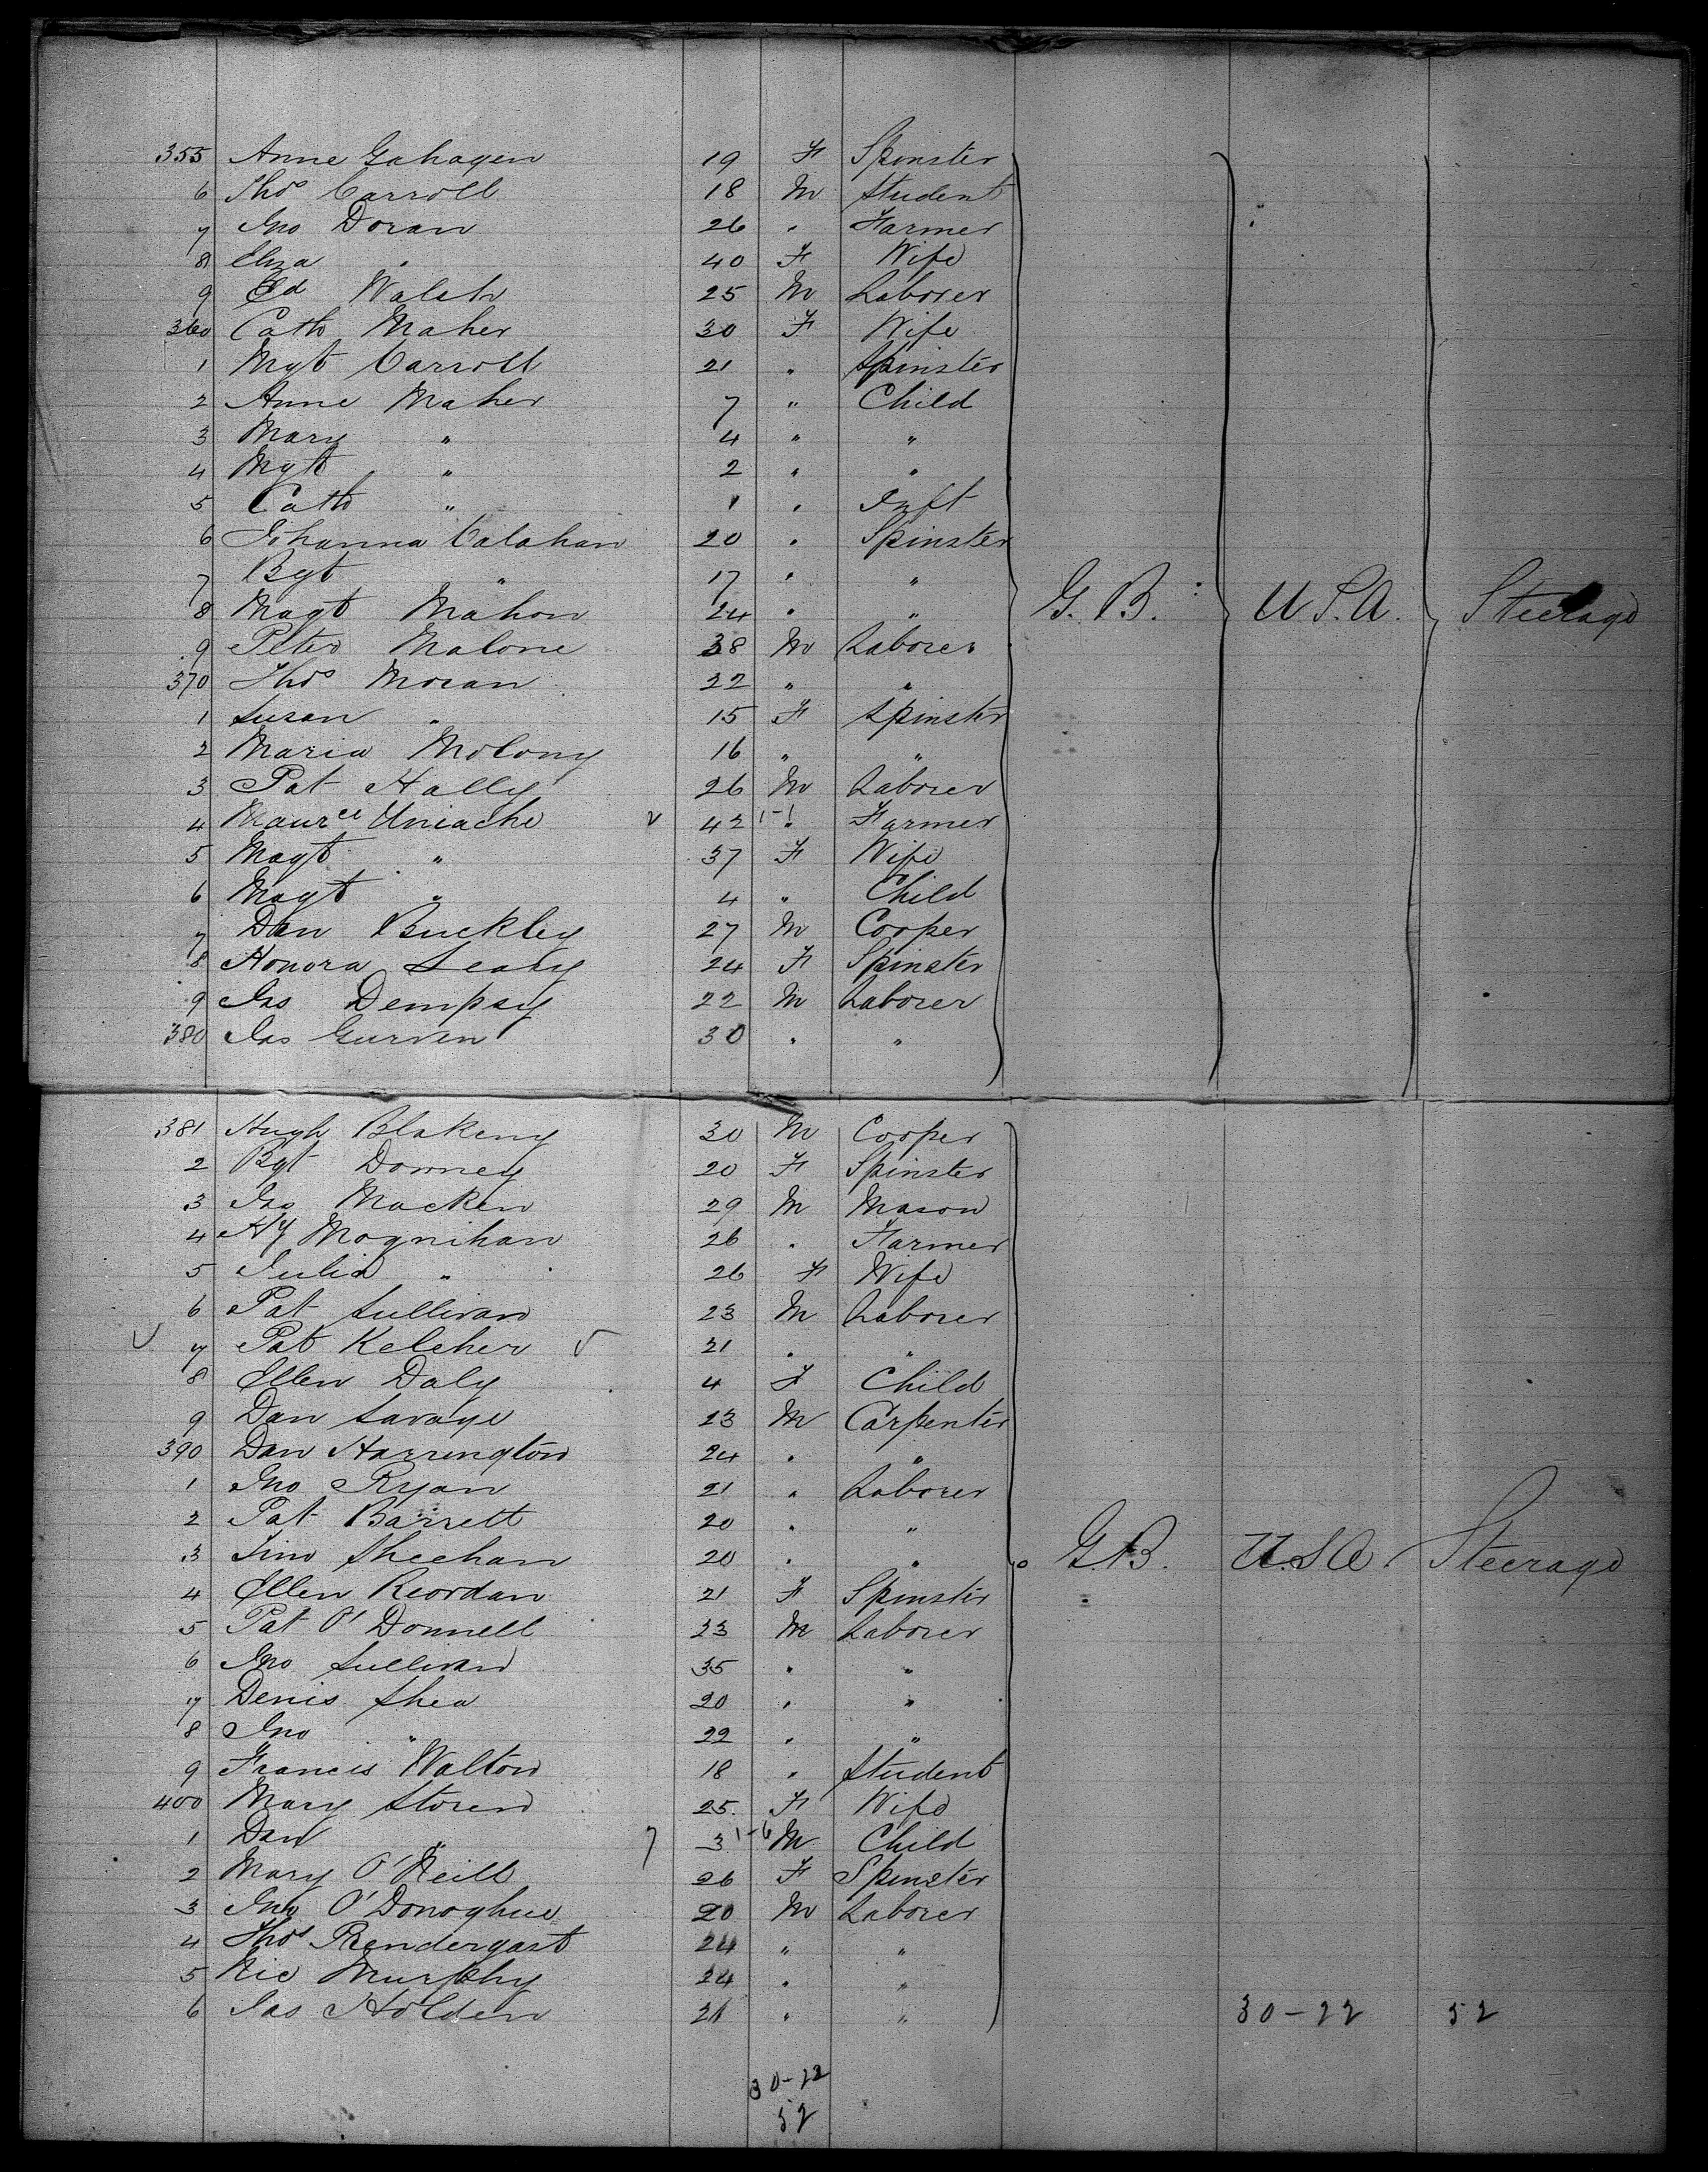 355 Anne Gahagen 19 F Spinster
6 Thos Carroll 18 M Student
7 Jno Doran 26 " Farmer
8 Eliza " 40 F Wife
9 Ed Walsh 25 M Laborer
360 Cath Maher 30 F Wife
1 Mgt Carroll 21 " Spinster
2 Anne Maher 7 " Child
3 Mary " 4 " "
4 Mgt " 2 " "
5 Cath " 1 " Inft
6 Johanna Calahan 20 " Spinster
7 Bgt " 17 " "
8 Magt Mahon 24 " " G. B. U S.A. Steerage
9 Peter Malone 38 M Laborer
370 Thos Moran 22 " "
1 Susan " 15 F Spinster
2 Maria Molony 16 " "
3 Pat Hally 26 M Laborer
4 Maurce Uniacke 42 1-1 " Farmer
5 Magt " 37 F Wife
6 Magt " 4 " Child
7 Dan Buckley 27 M Cooper
8 Honora Leahy 24 F Spinster
9 Jas Dempsey 22 M Laborer
380 Jas Gurven 30 " "
381 Hugh Blakeny 30 M Cooper
2 Bgt Downey 20 F Spinster
3 Jas Macken 29 M Mason
4 Hy Mognihan 26 " Farmer
5 Julia " 26 F Wife
6 Pat Sullivan 23 M Laborer
7 Pat Keleher 21 " "
8 Ellen Daly 4 F Child
9 Dan Savage 23 M Carpenter
390 Dan Harrington 24 " "
1 Jno Ryan 21 " Laborer
2 Pat Barrett 20 " "
3 Tim Sheehan 20 " " G.B. U.S.A. Steerage
4 Ellen Reordan 21 F Spinster
5 Pat O'Donnell 23 M Laborer
6 Jno Sullivan 35 " "
7 Denis Shea 20 " "
8 Jno " 22 " "
9 Francis Walton 18 " Student
400 Mary Storen 25 F Wife
1 Dan " 7 3 1-6 M Child
2 Mary O'Neill 26 F Spinster
3 Jno O'Donoghue 20 M Laborer
4 Thos Prendergast 24 " "
5 Nic Murphy 24 " "
6 Jas Holden 21 " " 30-22 52
30-22
52